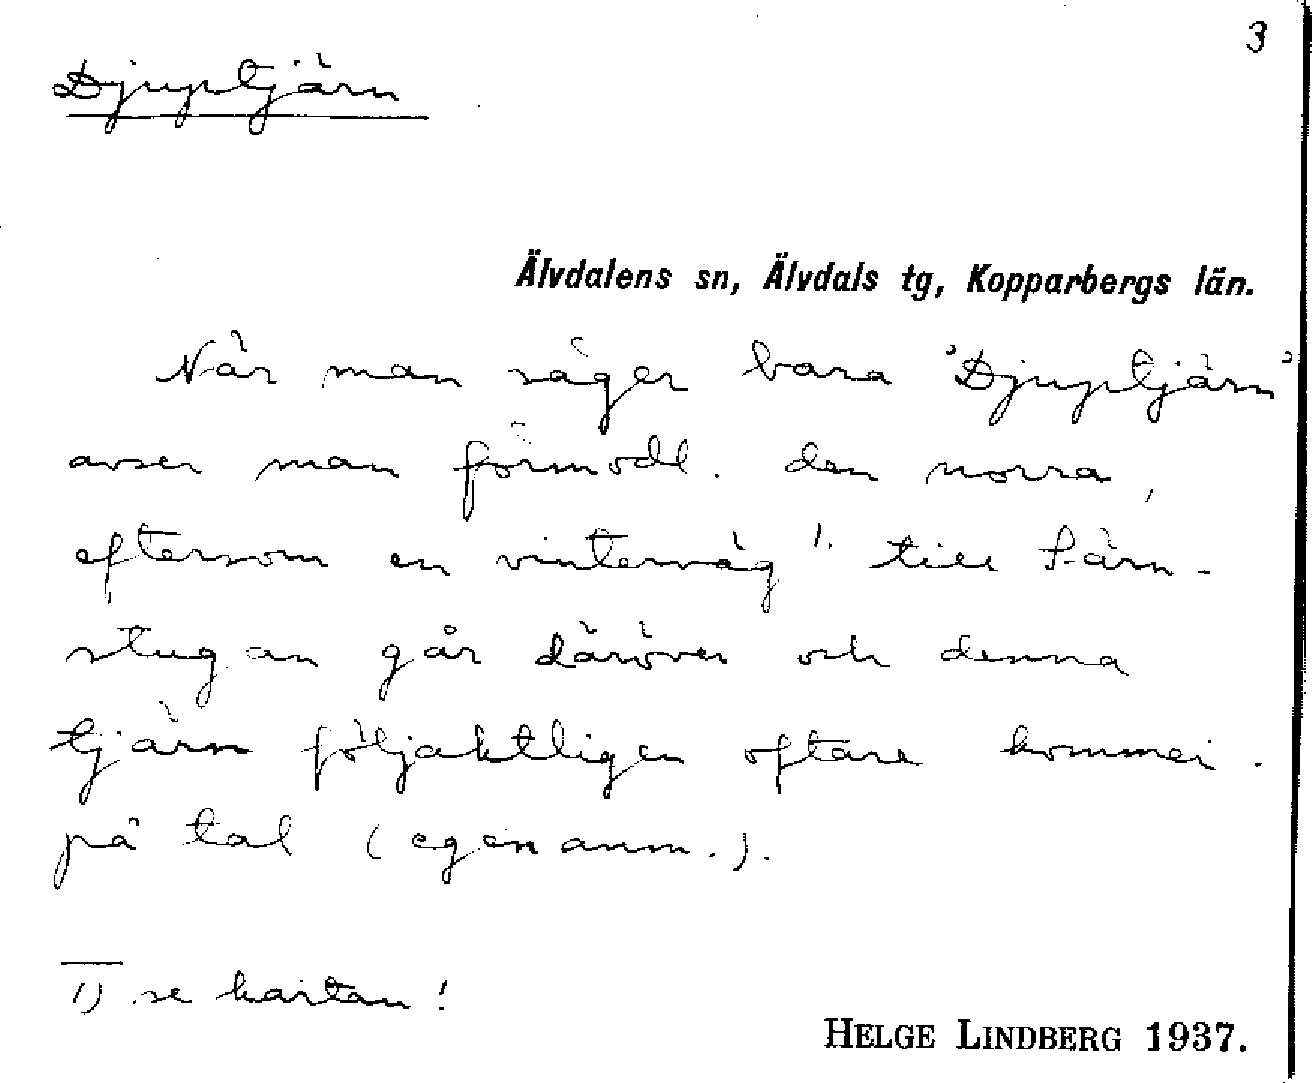 3
Djuptjärn
Älvdalens sn, Älvdals tg, Kopparbergs län.
När man säger bara 'Djuptjärn'
avser man förmodl. den norra,
eftersom en vinterväg 1. till Särn-
stugan går däröver och denna
tjärn följaktligen oftare kommer
på tal (egen anm.).
1) se kartan!
HELGE LINDBERG 1937.